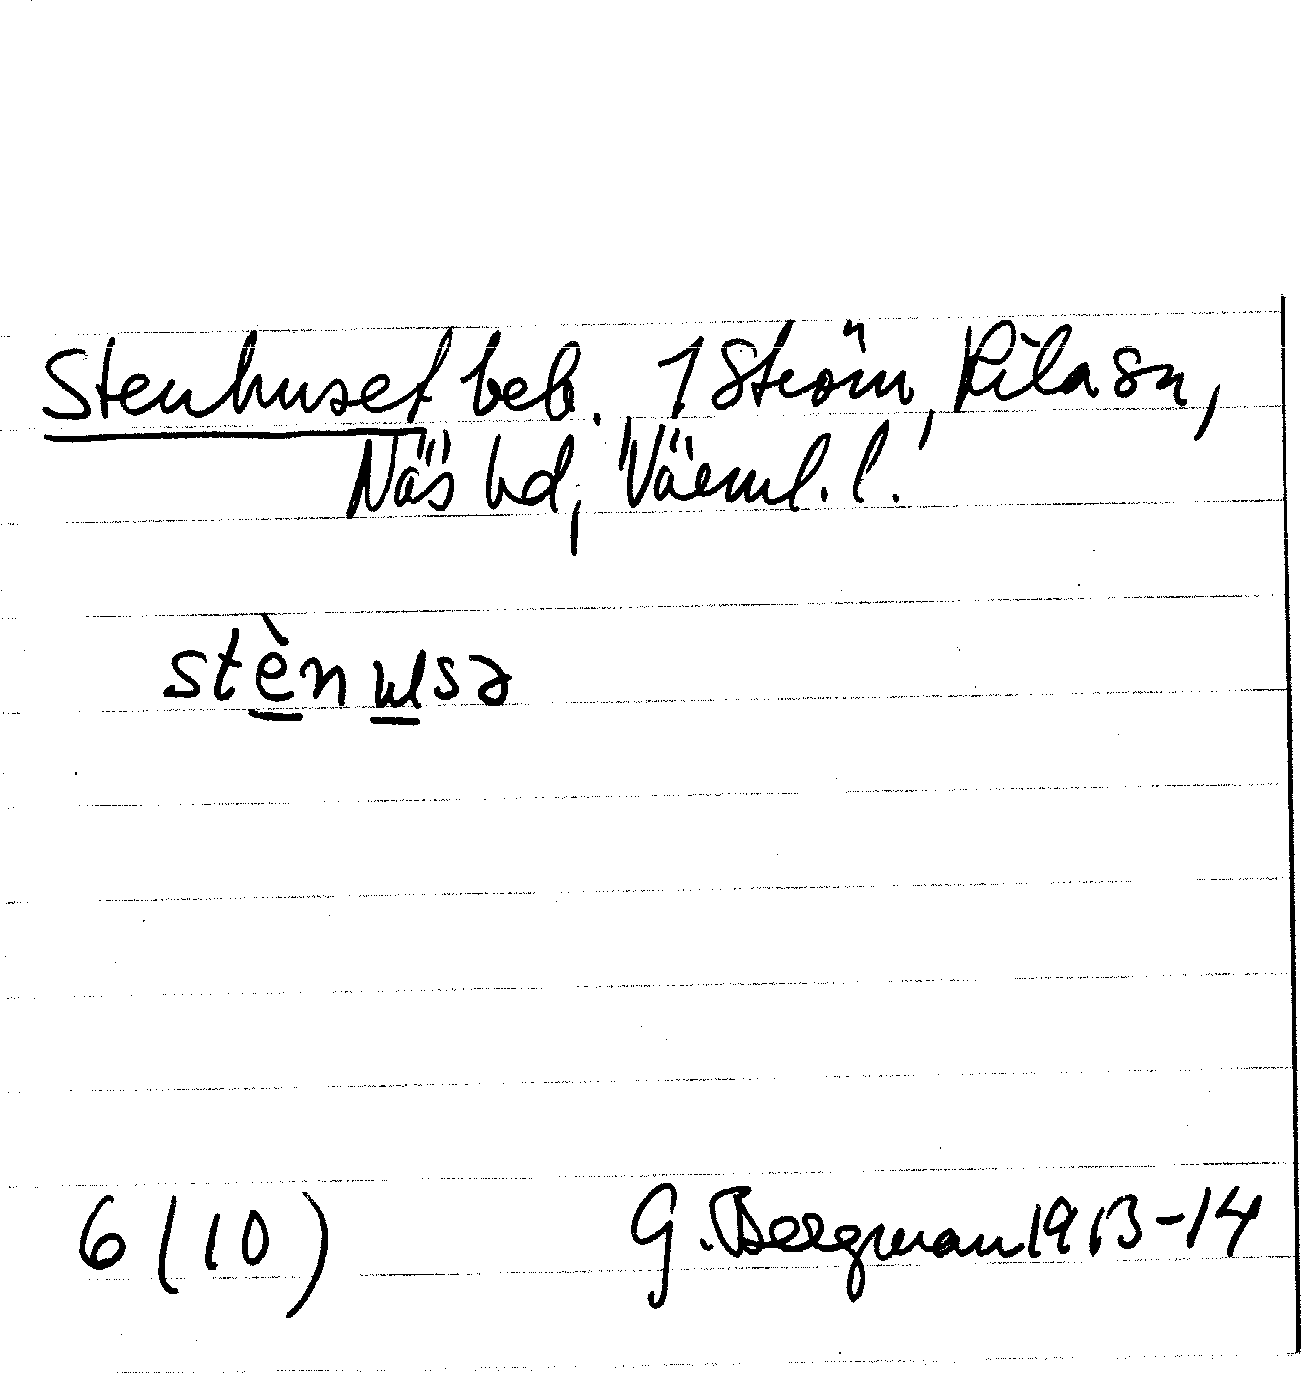 Stenhuset beb. 1 Ström, Kila sn,
Näs hd, Värml. l.
stèn ɯlsə
6 (10) G. Bergman 1913-14